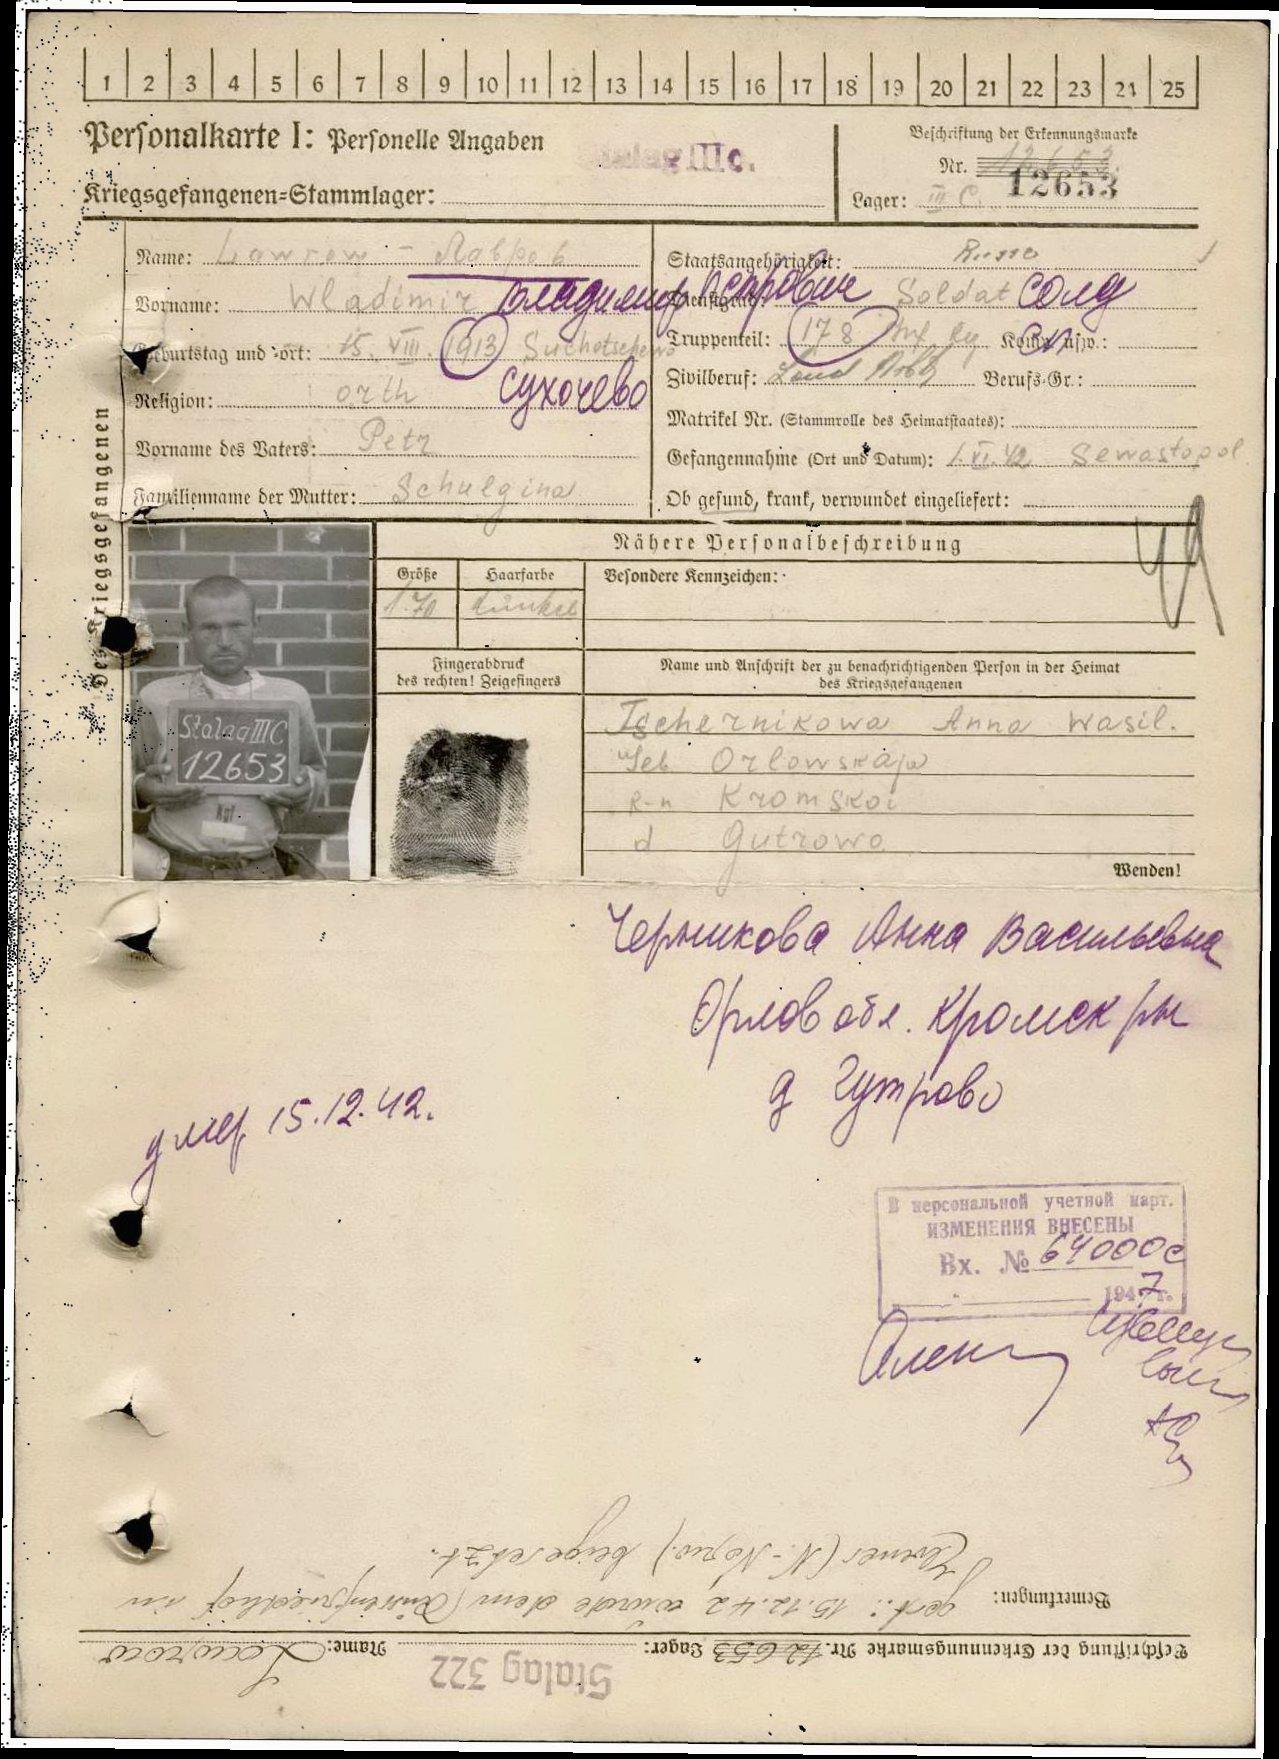 1 2 3 4 5 6 7 8 9 10 11 12 13 14 15 16 17 18 19 20 21 22 23 24 25
Personalkarte I: Personelle Angaben
Stalag III c.
Kriegsgefangenen-Stammlager:
Beschriftung der Erkennungsmarke
Nr. 12653.
12653
Lager: III C.
Des Kriegsgefangenen
Name: Lawrow - Лавров
Vorname: Wladimir Владимир Петрович
Geburtstag und -ort: 15. VIII. 1913 Suchotschewo
Сухочево
Religion: orth
Vorname des Vaters: Petr
Familienname der Mutter: Schulgina
Staatsangehörigkeit: Russe
Dienstgrad: Soldat солд
Truppenteil: 178 Inf. Rg Komp. usw.: сп
Zivilberuf: Land Arb. Berufs-Gr.:
Matrikel Nr. (Stammrolle des Heimatstaates):
Gefangennahme (Ort und Datum): 1. VI. 42 Sewastopol
Ob gesund, krank, verwundet eingeliefert:
Nähere Personalbeschreibung
Größe Haarfarbe Besondere Kennzeichen:
1.70 dunkel
Stalag III C
12653
Kgf
Fingerabdruck
des rechten! Zeigefingers
Name und Anschrift der zu benachrichtigenden Person in der Heimat
des Kriegsgefangenen
Tschernikowa Anna Wasil.
Geb Orlowskaja
R-n Kromskoi
d Gutrowo
Wenden!
Черникова Анна Васильевна
Орлов обл. Кромск р-н
д Гутрово
умер 15.12.42.
В персональной учетной карт.
ИЗМЕНЕНИЯ ВНЕСЕНЫ
Вх. № 64000с
1947 г.
Beschriftung der Erkennungsmarke Nr. 12653 Lager: Name: Lawrow
Stalag 322
Bemerkungen: gest.: 15.12.42 wurde dem Russenfriedhof in
(N.-Norw.) beigesetzt.